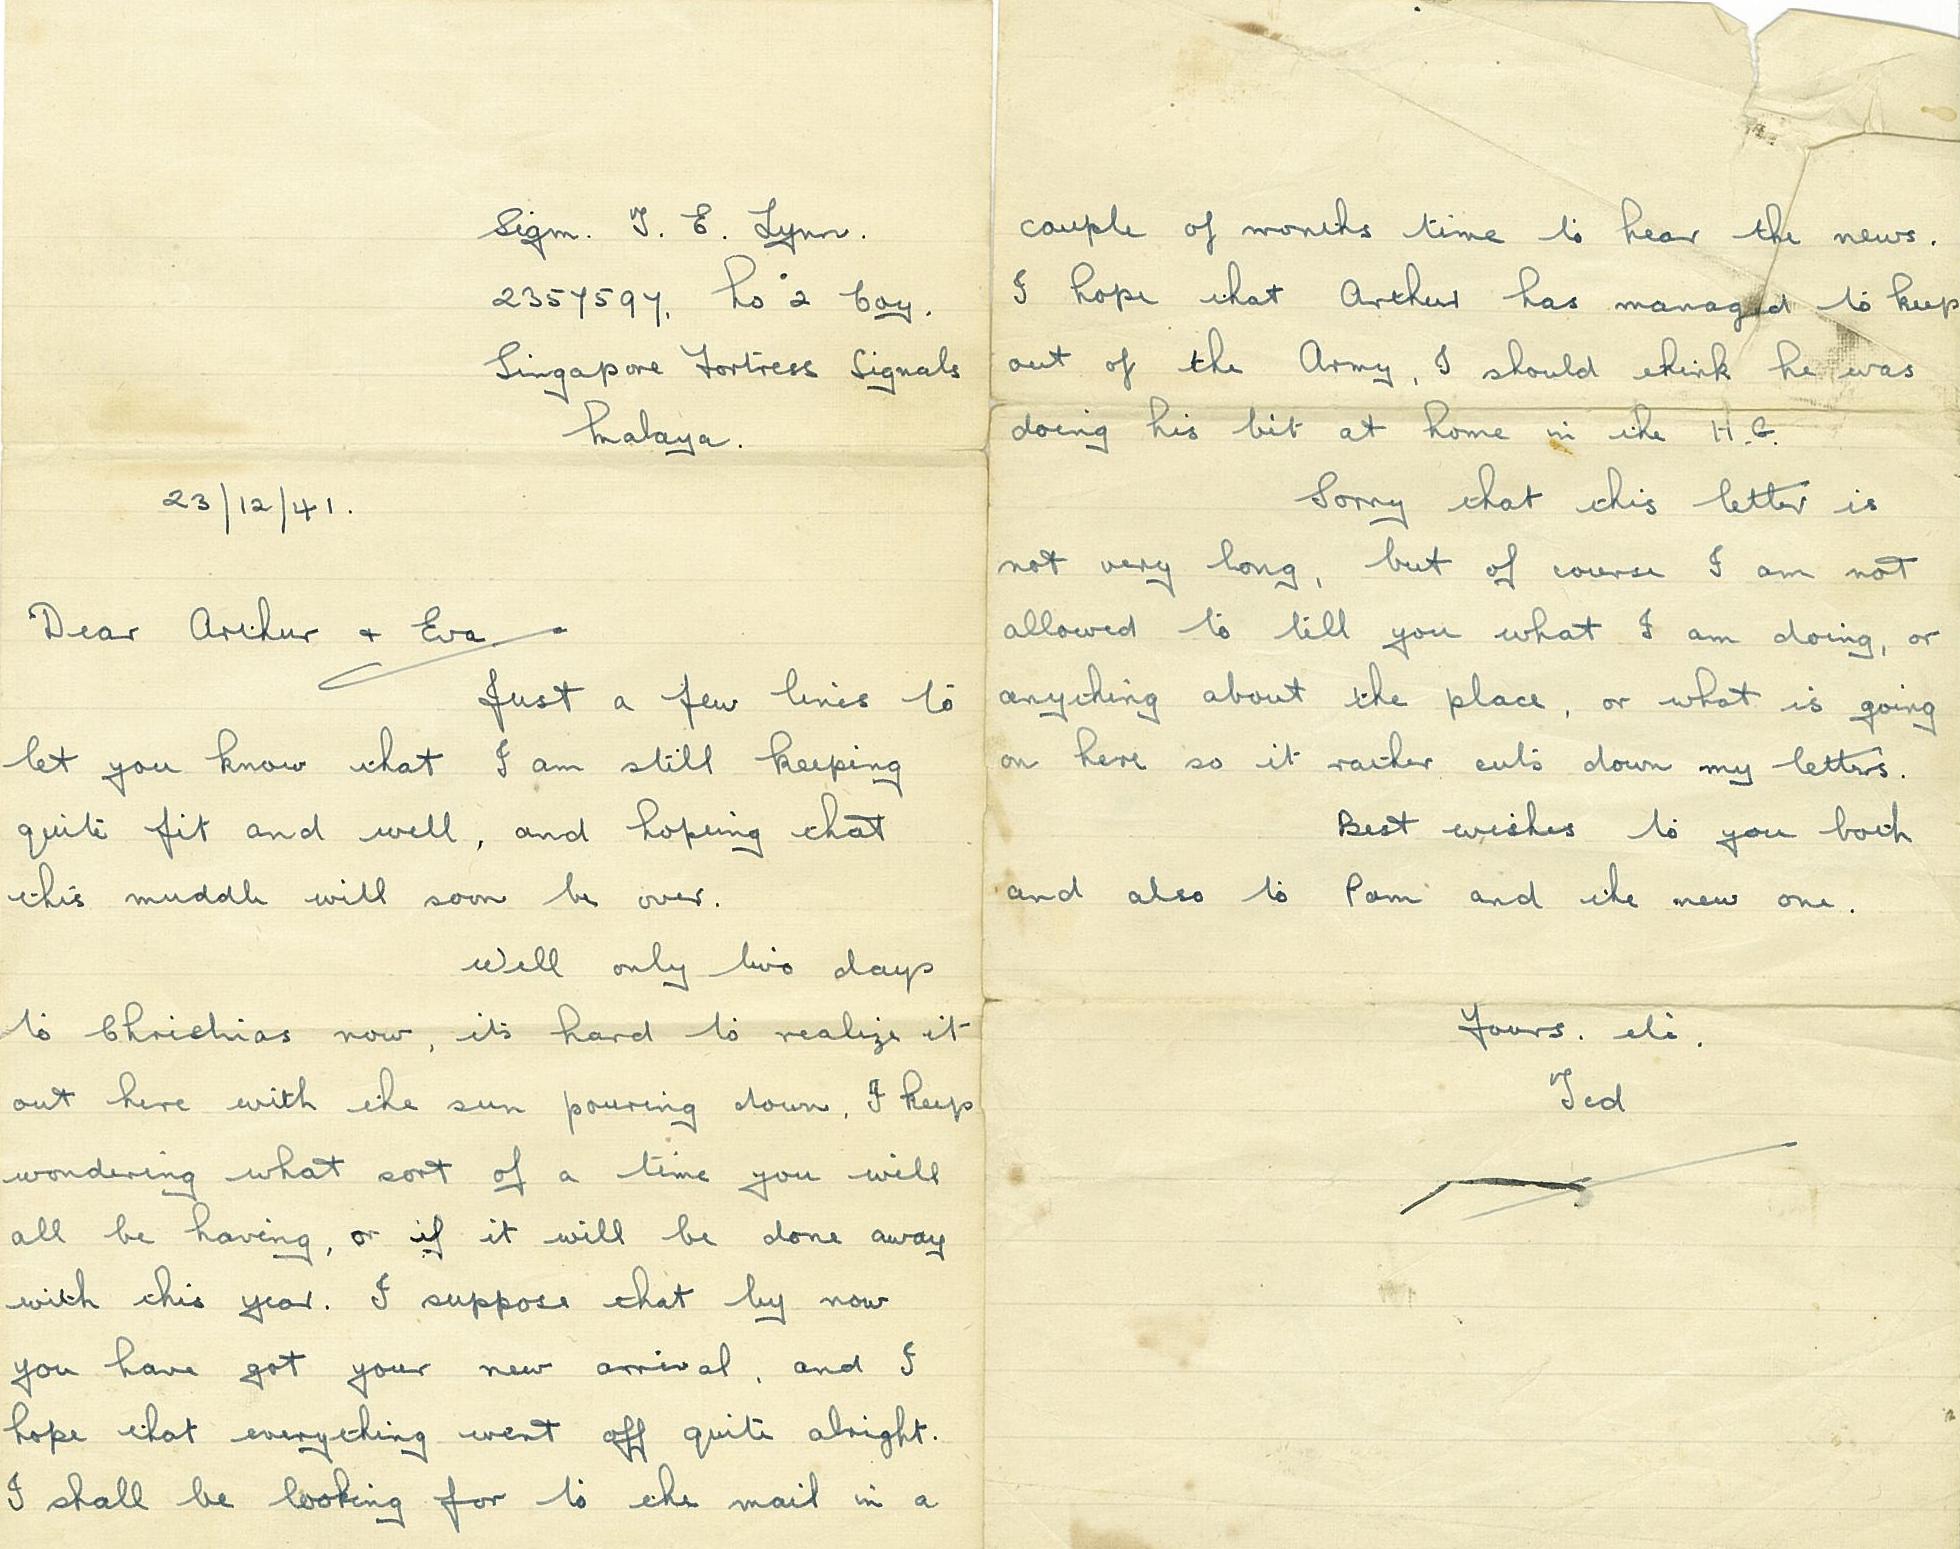 Sigm. T. E. Lynn.
2357597, No 2 Coy.
Singapore Fortress Signals
Malaya.
23/12/41.
Dear Arthur + Eva
Just a few lines to
let you know that I am still keeping
quite fit and well, and hoping that
this muddle will soon be over.
Well only two days
to Christmas now, its hard to realize it
out here with the sun pouring down, I keep
wondering what sort of a time you will
all be having, or if it will be done away
with this year. I suppose that by now
you have got your new arrival, and I
hope that everything went off quite alright.
I shall be looking for to the mail in a
couple of months time to hear the news.
I hope that Arthur has managed to keep
out of the Army, I should think he was
doing his bit at home in the H.G.
Sorry that this letter is
not very long, but of course I am not
allowed to tell you what I am doing, or
anything about the place, or what is going
on here so it rather cuts down my letters.
Best wishes to you both
and also to Pam and the new one.
Yours. etc.
Ted